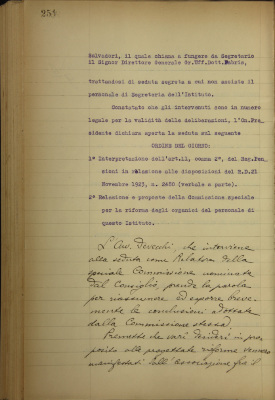 254
Salvadori, il quale chiama a fungere da Segretario
il Signor Direttore Generale Gr.Uff.Dott.Fabris,
trattandosi di seduta segreta a cui non assiste il
personale di Segreteria dell'Istituto.
Constatato che gli intervenuti sono in numero
legale per la validità delle deliberazioni, l'On.Pre-
sidente dichiara aperta la seduta sul seguente
ORDINE DEL GIORNO:
1° Interpretazione dell'art.11, comma 2°, del Reg.Pen-
sioni in relazione alle disposizioni del R.D.21
Novembre 1923, n. 2480 (vertale a parte).
2° Relazione e proposte della Commissione speciale
per la riforma degli organici del personale di
questo Istituto.
L'Avv. Devecchi, che interviene
alla seduta come Relatore della
speciale Commissione nominata
dal Consiglio, prende la parola
per riassumere ed esporre breve-
mente le conclusioni adottate
dalla Commissione stessa.
Premette che varî desideri in pro-
posito alle progettate riforme vennero
manifestati dall'Associazione fra il